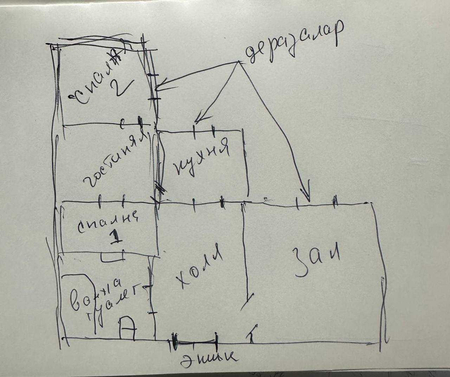 деразалар
спалня
2
гостиная
кухня
спалня
1
холл
зал
ванна
туалет
эшик